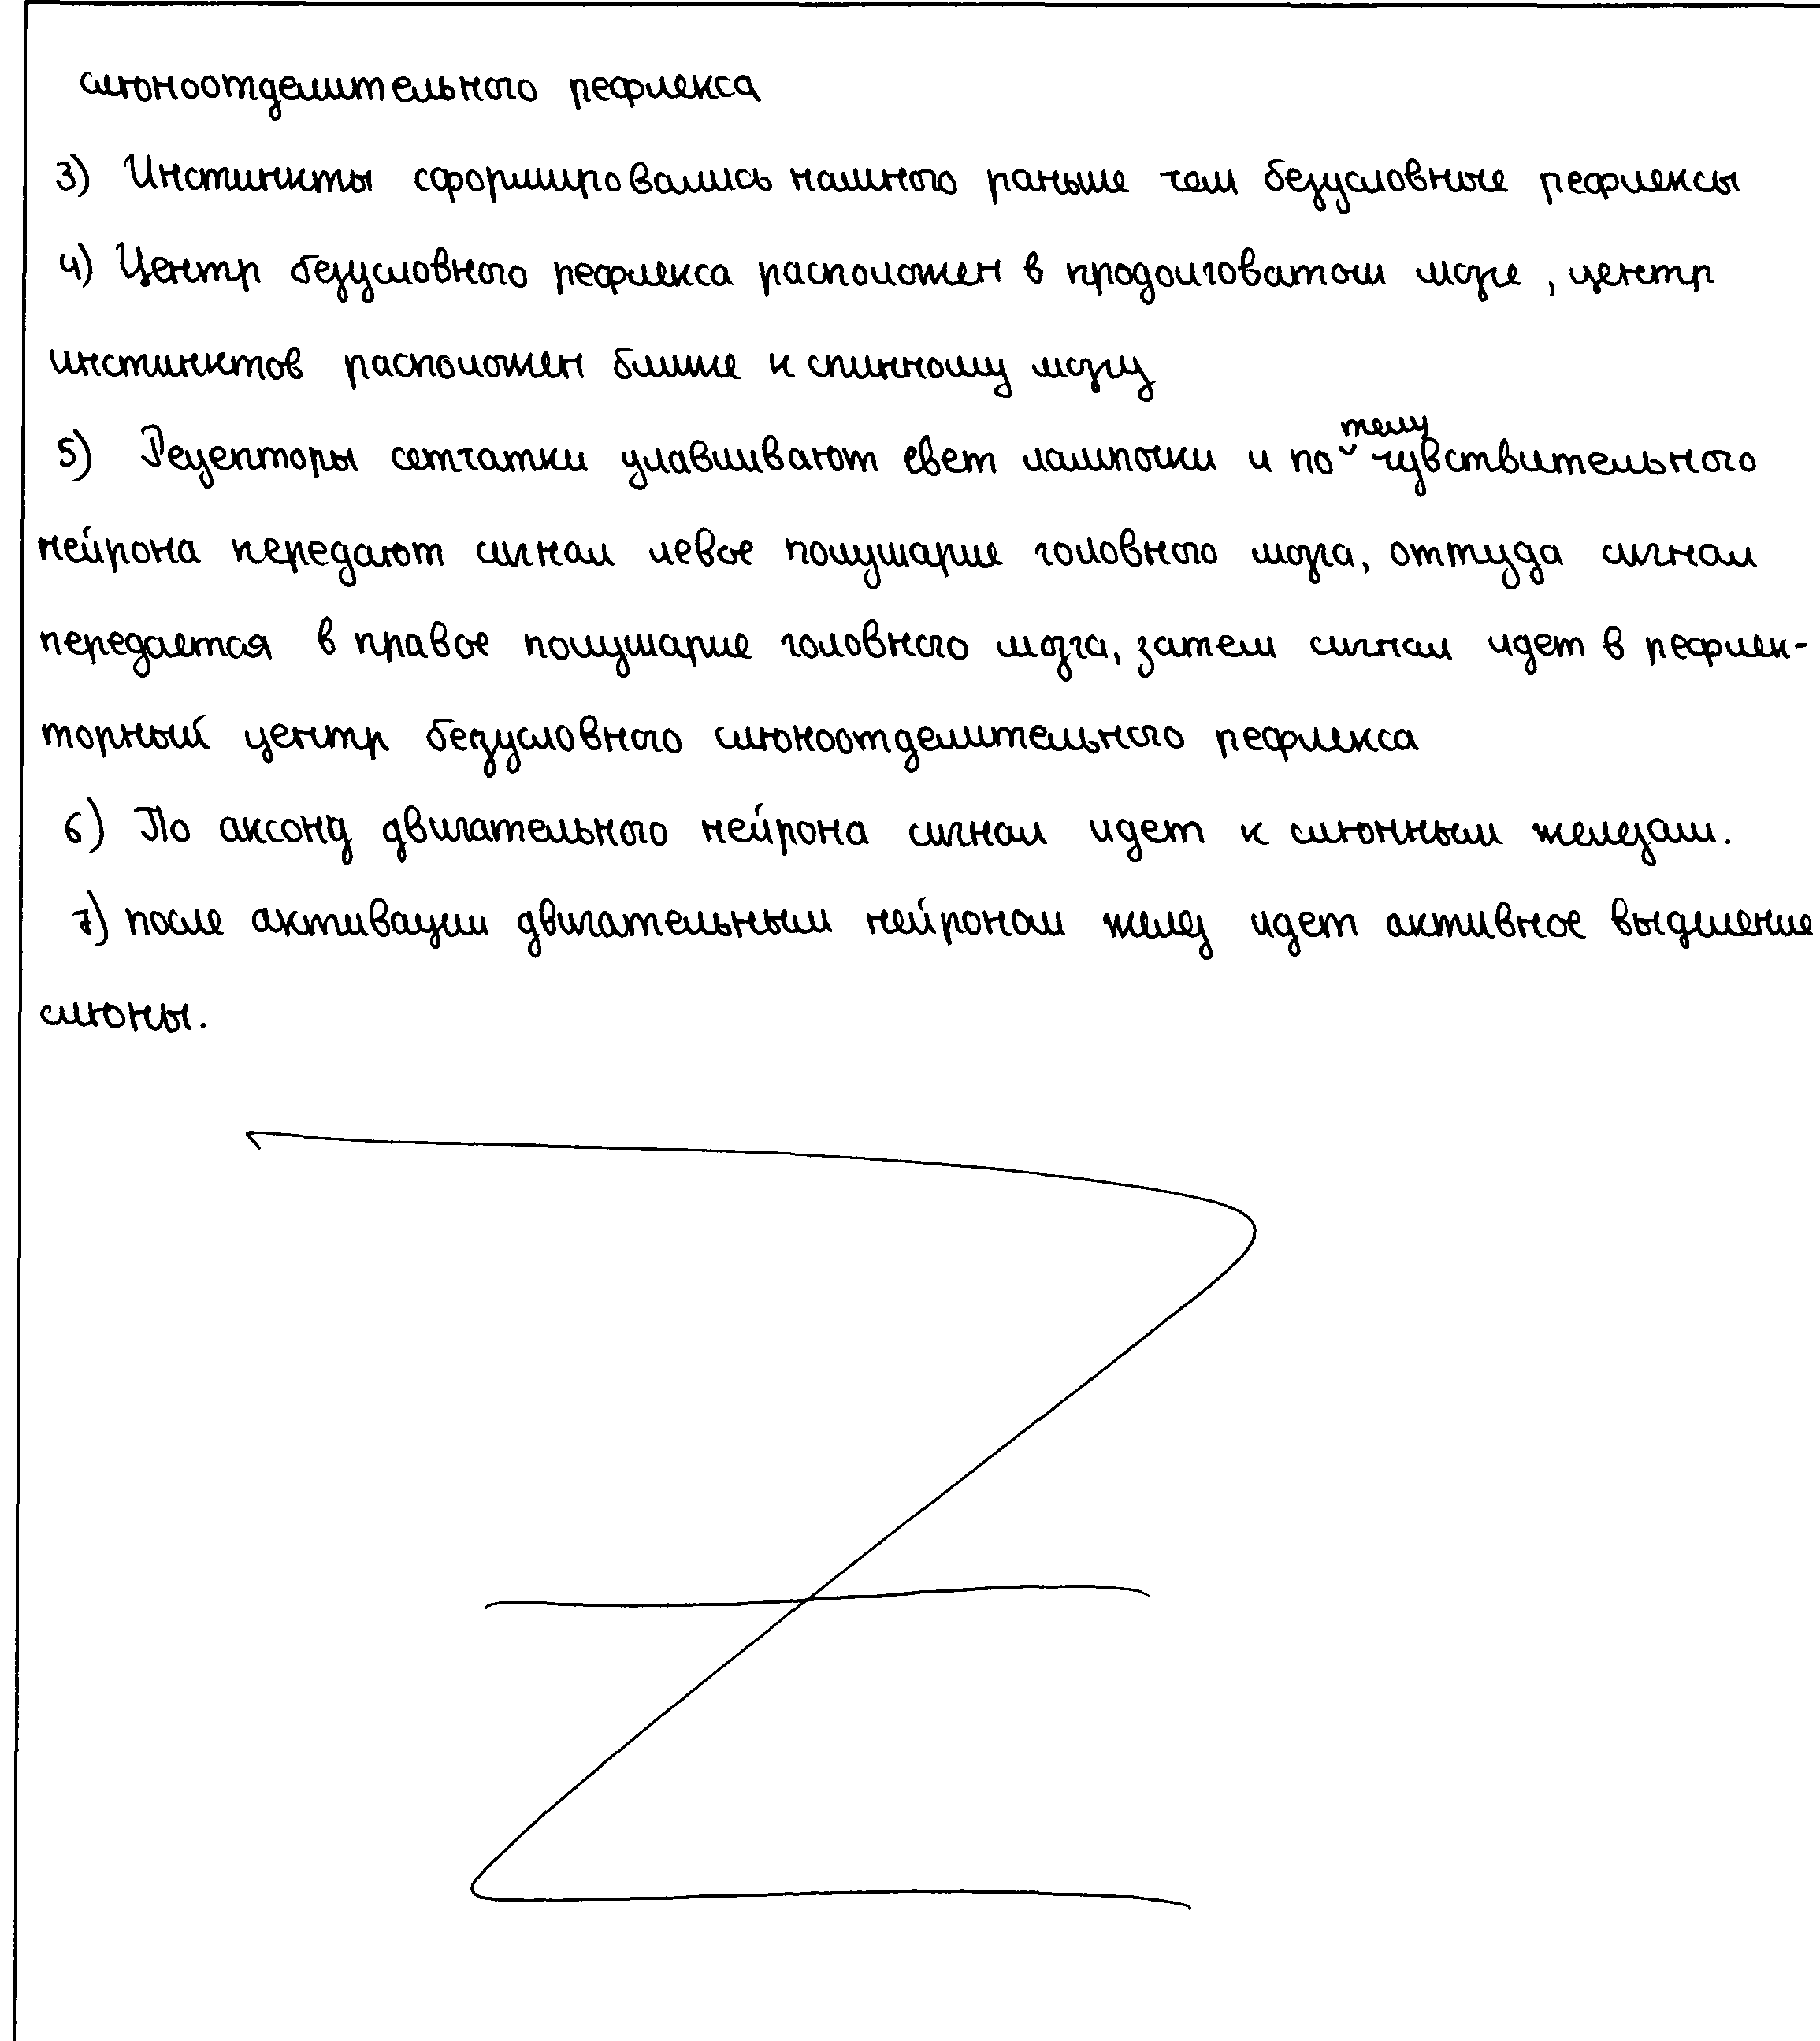 слюноотделительного рефлекса
3) Инстинкты сформировались намного раньше чем безусловные рефлексы
4) Центр безусловного рефлекса расположен в продолговатом мозге, центр
инстинктов расположен ближе к спинному мозгу
5) Рецепторы сетчатки улавливают свет лампочки и по телу чувствительного
нейрона передают сигнал левое полушарие головного мозга, оттуда сигнал
передается в правое полушарие головного мозга, затем сигнал идет в рефлек-
торный центр безусловного слюноотделительного рефлекса
6) По аксону двигательного нейрона сигнал идет к слюнным железам.
7) после активации двигательным нейроном желез идет активное выделение
слюны.